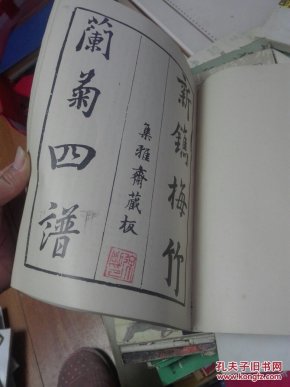 新鐫梅竹
蘭菊四譜
集雅齋藏板
孔夫子旧书网